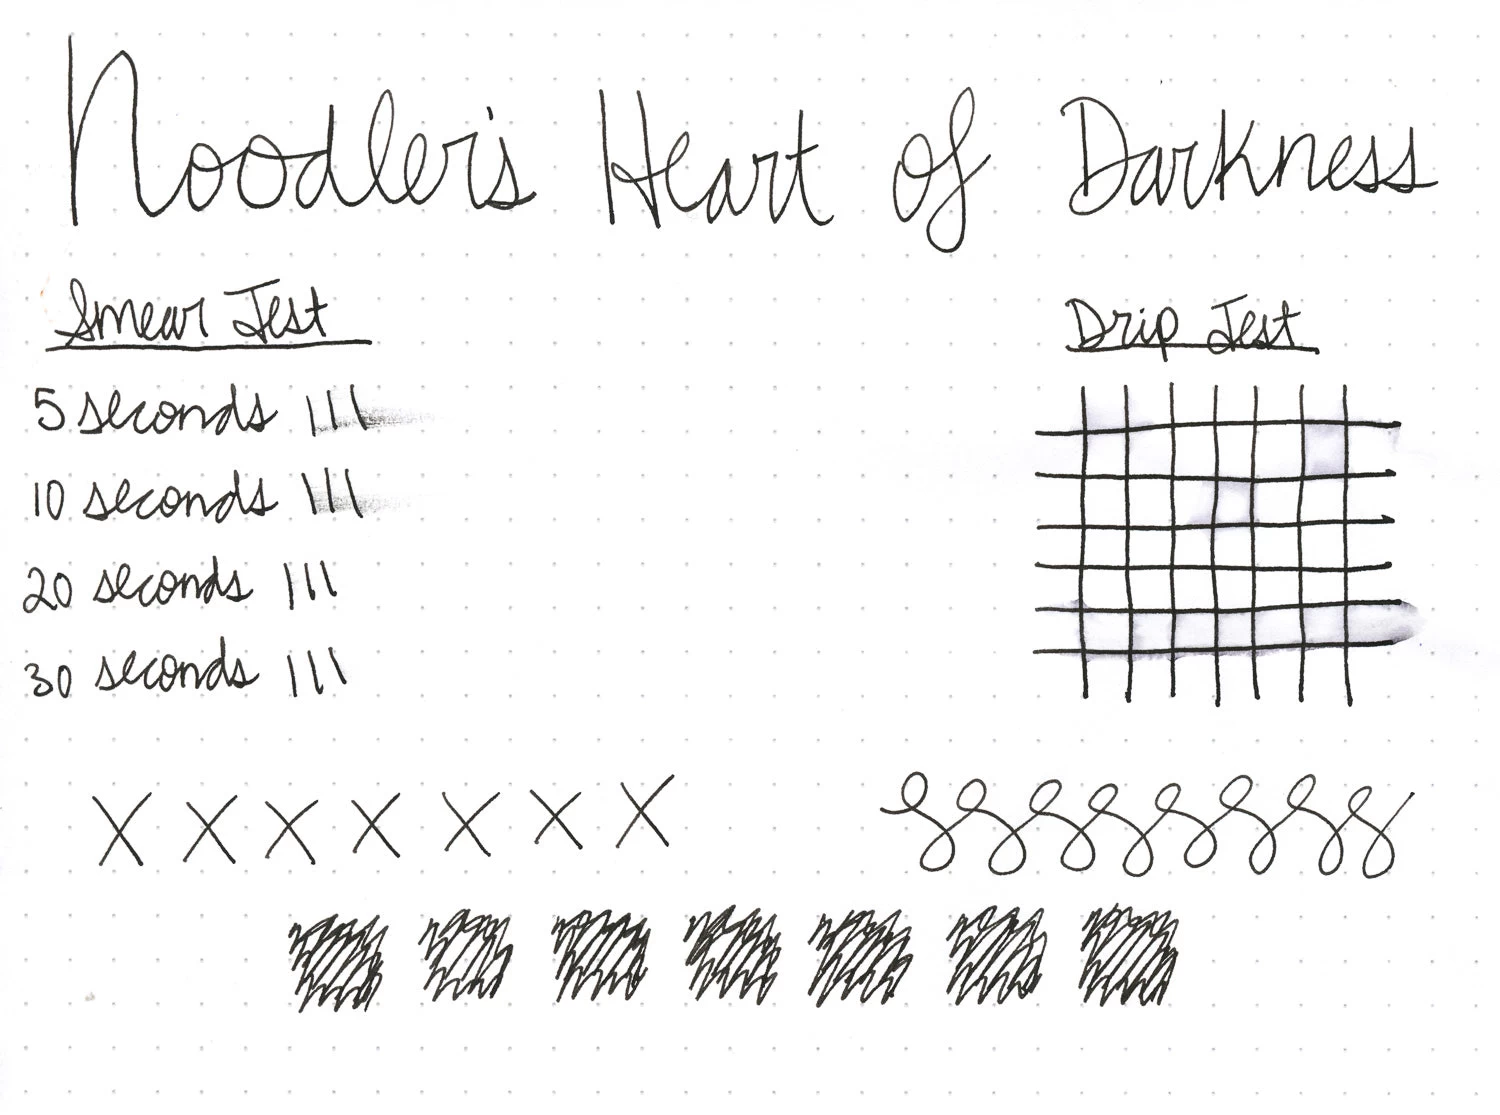 Noodler's Heart of Darkness
Smear Test
Drip Test
5 seconds
10 seconds
20 seconds
30 seconds